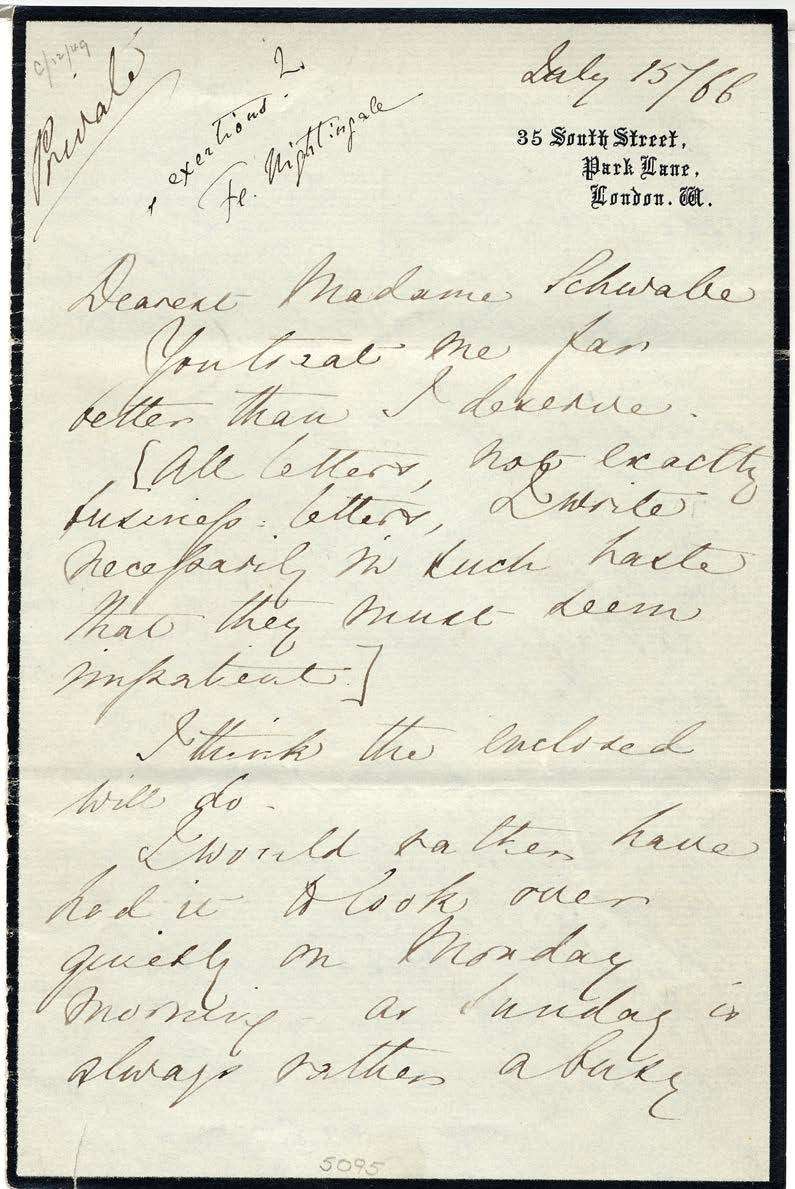 C/12/49
Private
exertions.
F. Nightingale
July 15/66
35 South Street,
Park Lane,
London. W.
Dearest Madame Schwabe
You treat me far
better than I deserve.
[All letters, not exactly
business-letters, I write
necessarily in such haste
that they must seem
impatient.]
I think the enclosed
will do -
I would rather have
had it to look over
quietly on Monday
morning - as Sunday is
always rather a busy
5095